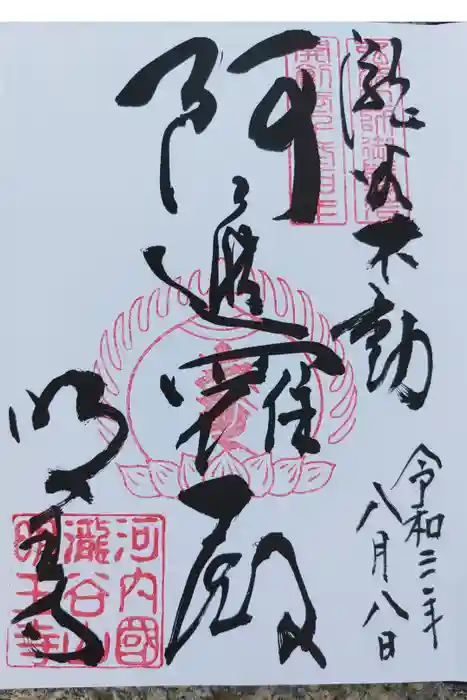 瀧谷不動
阿遮羅殿
明王寺
令和二年
八月八日
河内國
瀧谷山
明王寺